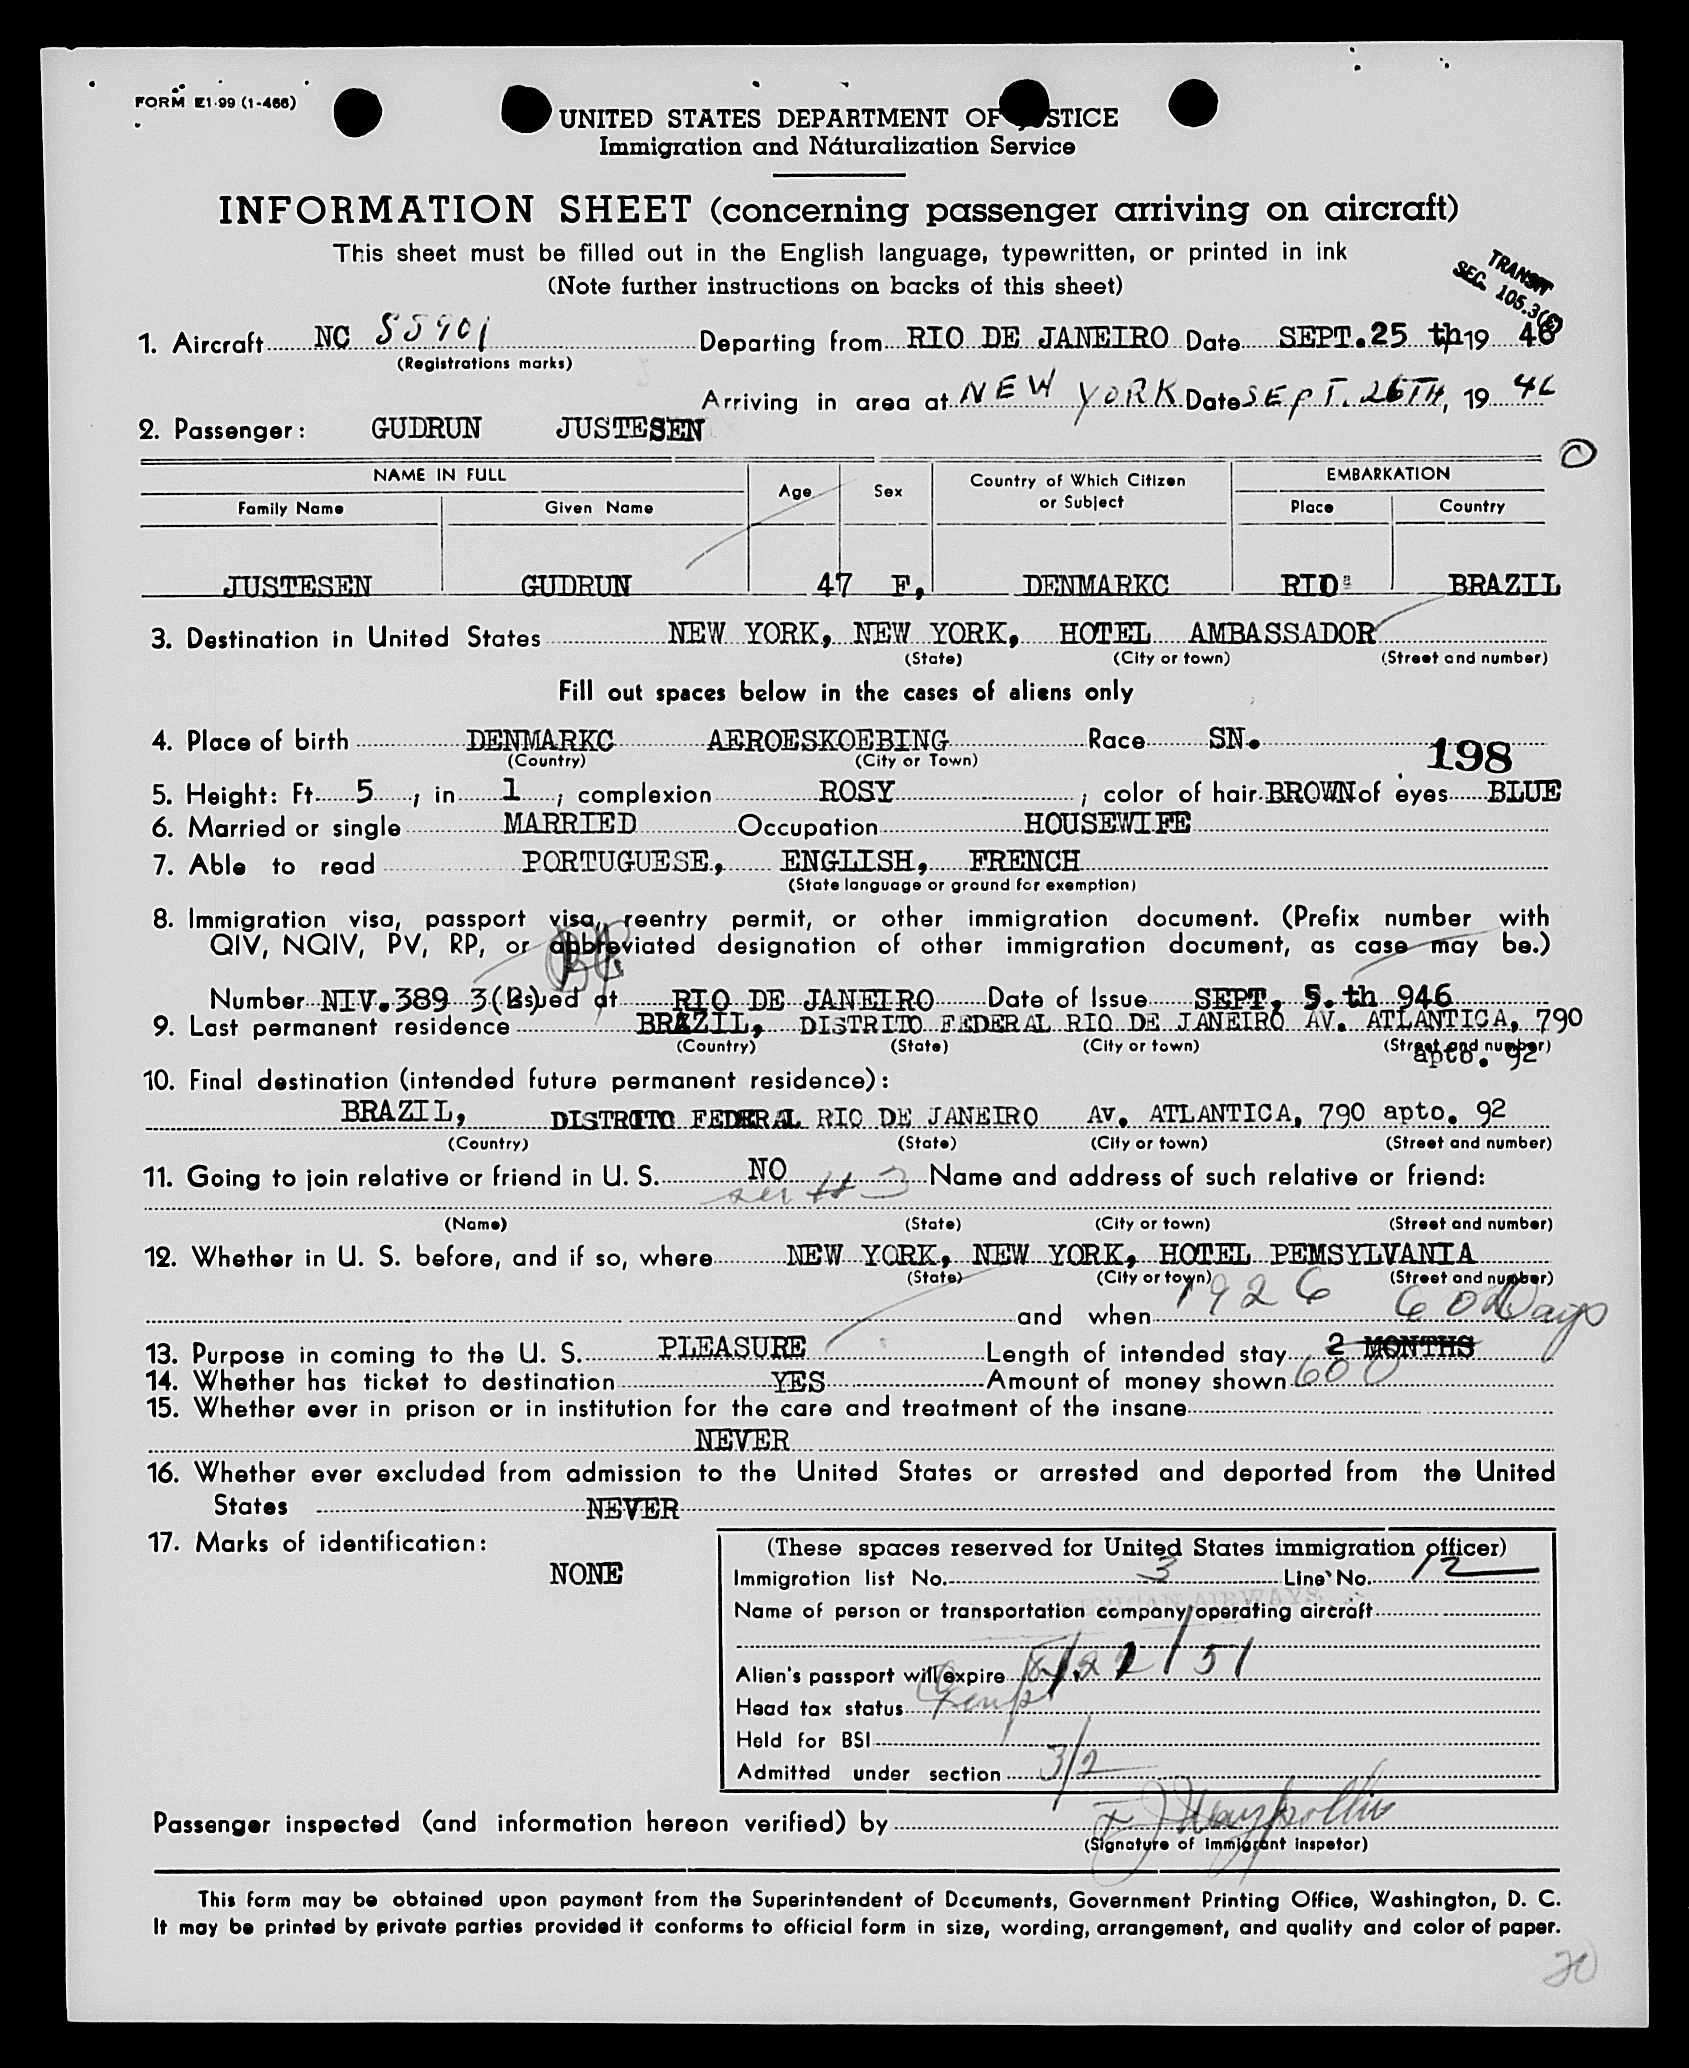 FORM E1-99 (1-466)
UNITED STATES DEPARTMENT OF JUSTICE
Immigration and Naturalization Service
INFORMATION SHEET (concerning passenger arriving on aircraft)
This sheet must be filled out in the English language, typewritten, or printed in ink
(Note further instructions on backs of this sheet)
TRANSIT
SEC. 105.3(E)
1. Aircraft NC Departing from RIO DE JANEIRO Date SEPT.25 th 19 46
(Registrations marks)
Arriving in area at NEW YORK Date SEPT. 26TH, 19 46
2. Passenger: GUDRUN JUSTESEN
NAME IN FULL Age Sex Country of Which Citizen or Subject EMBARKATION
Family Name Given Name Place Country
JUSTESEN GUDRUN 47 F, DENMARKC RIO BRAZIL
3. Destination in United States NEW YORK, NEW YORK, HOTEL AMBASSADOR
(State) (City or town) (Street and number)
Fill out spaces below in the cases of aliens only
4. Place of birth DENMARKC AEROESKOEBING Race SN.
(Country) (City or Town)
198
5. Height: Ft. 5 ; in 1 ; complexion ROSY ; color of hair BROWN of eyes BLUE
6. Married or single MARRIED Occupation HOUSEWIFE
7. Able to read PORTUGUESE, ENGLISH, FRENCH
(State language or ground for exemption)
8. Immigration visa, passport visa, reentry permit, or other immigration document. (Prefix number with
QIV, NQIV, PV, RP, or abbreviated designation of other immigration document, as case may be.)
Number NIV.389 3( Issued at RIO DE JANEIRO Date of Issue SEPT, 5.th 946
9. Last permanent residence BRAZIL, DISTRITO FEDERAL RIO DE JANEIRO AV. ATLANTICA, 790
(Country) (State) (City or town) (Street and number)
apto. 92
10. Final destination (intended future permanent residence):
BRAZIL, DISTRITO FEDERAL RIO DE JANEIRO AV. ATLANTICA, 790 apto. 92
(Country) (State) (City or town) (Street and number)
11. Going to join relative or friend in U. S. NO Name and address of such relative or friend:
# 3
(Name) (State) (City or town) (Street and number)
12. Whether in U. S. before, and if so, where NEW YORK, NEW YORK, HOTEL PEMSYLVANIA
(State) (City or town) (Street and number)
and when 1926 60 Days
13. Purpose in coming to the U. S. PLEASURE Length of intended stay 2 MONTHS
14. Whether has ticket to destination YES Amount of money shown 600
15. Whether ever in prison or in institution for the care and treatment of the insane
NEVER
16. Whether ever excluded from admission to the United States or arrested and deported from the United
States NEVER
17. Marks of identification:
NONE
(These spaces reserved for United States immigration officer)
Immigration list No. 3 Line No. 12
Name of person or transportation company operating aircraft
Alien's passport will expire 8/22/51
Head tax status
Held for BSI
Admitted under section 3/2
Passenger inspected (and information hereon verified) by
(Signature of immigrant inspetor)
This form may be obtained upon payment from the Superintendent of Documents, Government Printing Office, Washington, D. C.
It may be printed by private parties provided it conforms to official form in size, wording, arrangement, and quality and color of paper.
20